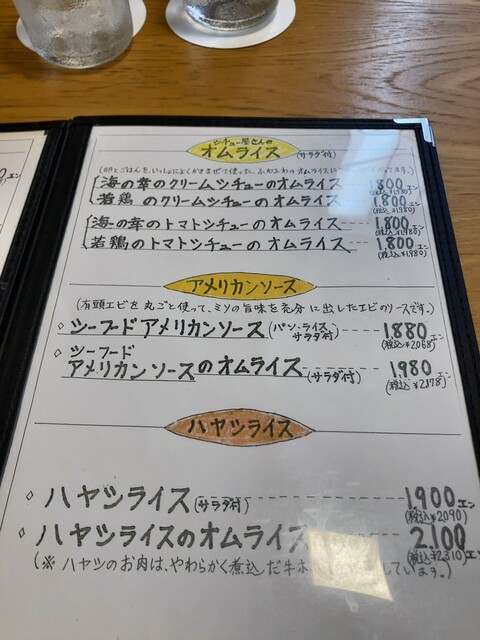 シチュー屋さんの
オムライス (サラダ付)
(卵とごはんを、いっしょによくかきまぜて使った、ふわふわのオムライスに ます。)
海の幸のクリームシチューのオムライス 800エン
(税込¥1,980)
若鶏のクリームシチューのオムライス 1,800エン
(税込¥1,980)
海の幸のトマトシチューのオムライス 1,800エン
(税込¥1,980)
若鶏のトマトシチューのオムライス 1,800エン
(税込¥1,980)
アメリカンソース
(有頭エビを丸ごと使って、ミソの旨味を充分に出したエビのソースです。)
◇シーフードアメリカンソース(パン・ライス サラダ付) 1,880エン
(税込¥2,068)
◇シーフード
アメリカンソースのオムライス(サラダ付) 1,980エン
(税込¥2,178)
ハヤシライス
◇ハヤシライス(サラダ付) 1900エン
(税込¥2,090)
◇ハヤシライスのオムライス 2,100エン
(税込¥2,310)
(※ハヤシのお肉は、やわらかく煮込んだ牛ホ しています。)